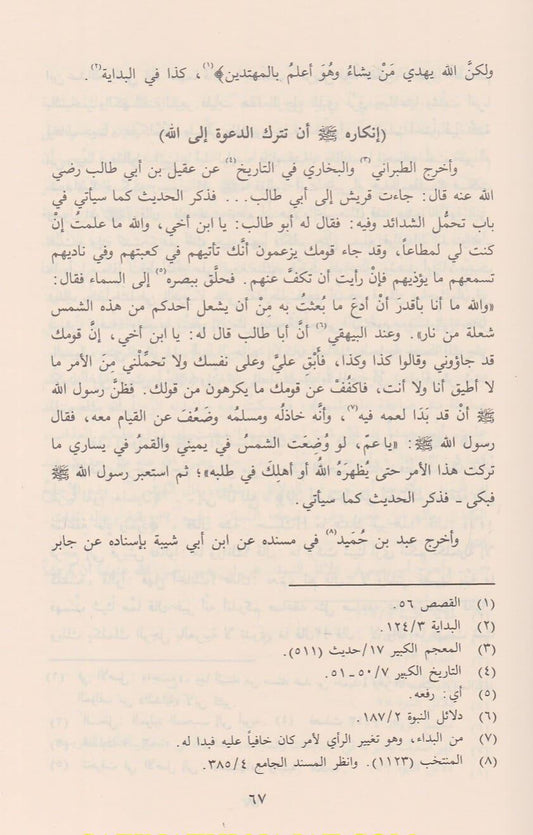 ولكنَّ الله يهدي مَنْ يشاءُ وهُوَ أعلمُ بالمهتدين﴾(١)، كذا في البداية(٢).
(إنكاره ﷺ أن تترك الدعوة إلى الله)
وأخرج الطبراني(٣) والبخاري في التاريخ(٤) عن عقيل بن أبي طالب رضي
الله عنه قال: جاءت قريش إلى أبي طالب... فذكر الحديث كما سيأتي في
باب تحمُّل الشدائد وفيه: فقال له أبو طالب: يا ابن أخي، والله ما علمتُ إنْ
كنت لي لمطاعاً، وقد جاء قومك يزعمون أنَّك تأتيهم في كعبتهم وفي ناديهم
تسمعهم ما يؤذيهم فإنْ رأيت أن تكفَّ عنهم. فحلَّق ببصره(٥) إلى السماء فقال:
«والله ما أنا بأقدرَ أنْ أدعَ ما بُعثتُ به مِنْ أن يشعل أحدكم من هذه الشمس
شعلة من نار». وعند البيهقي(٦) أنَّ أبا طالب قال له: يا ابن أخي، إنَّ قومك
قد جاؤوني وقالوا كذا وكذا، فأَبْقِ عليَّ وعلى نفسك ولا تحمِّلْني مِنَ الأمر ما
لا أطيق أنا ولا أنت، فاكفُفْ عن قومك ما يكرهون من قولك. فظنَّ رسول الله
ﷺ أنْ قد بَدَا لعمه فيه(٧)، وأنَّه خاذلُه ومسلمُه وضَعُفَ عن القيام معه، فقال
رسول الله ﷺ: «يا عمّ، لو وُضِعَت الشمسُ في يميني والقمرُ في يساري ما
تركت هذا الأمر حتى يُظهرَهُ اللهُ أو أهلِكَ في طلبه»؛ ثم استعبر رسول الله ﷺ
فبكى - فذكر الحديث كما سيأتي.
وأخرج عبد بن حُمَيد(٨) في مسنده عن ابن أبي شيبة بإسناده عن جابر
(١) القصص ٥٦.
(٢) البداية ١٢٤/٣.
(٣) المعجم الكبير ١٧/حديث (٥١١).
(٤) التاريخ الكبير ٥٠/٧-٥١.
(٥) أي: رفعه.
(٦) دلائل النبوة ١٨٧/٢.
(٧) من البداء، وهو تغيير الرأي لأمر كان خافياً عليه فبدا له.
(٨) المنتخب (١١٢٣). وانظر المسند الجامع ٣٨٥/٤.
٦٧